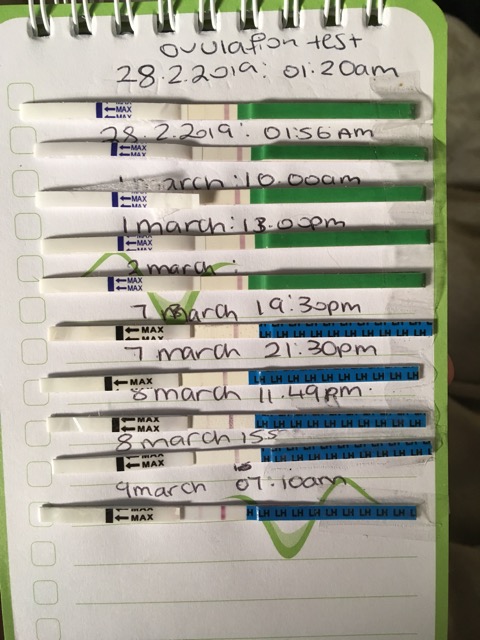 ovulation test
28.2.2019: 01:20am
←MAX
←MAX
28.2.2019: 01:56 AM
←MAX
MAX
march: 10.00am
←MAX
←MAX
1 march: 13.00pm
←MAX
←MAX
2 march:
←MAX
←MAX
7 march 19:30pm
←MAX
MAX
LH LH LH LH LH LH LH LH LH
7 march 21:30pm
←MAX
LH LH LH LH LH LH LH LH LH
8 march 11.49pm
←MAX
←MAX
LH LH LH LH LH LH LH LH LH
8 march
←MAX
←MAX
LH LH LH LH LH LH LH LH LH
9 march 07:10am
←MAX
LH LH LH LH LH LH LH LH